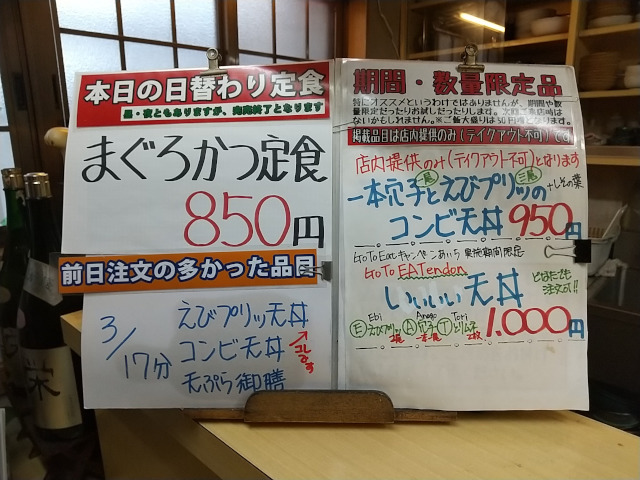 本日の日替わり定食
昼・夜ともありますが、完売終了となります
まぐろかつ定食
850円
前日注文の多かった品目
3/17分
えびプリッツ天丼
コンビ天丼
コレです
天ぷら御膳
期間・数量限定品
特にオススメというわけではありませんが、期間や数
量限定だったりお試しだったりします。次回ご来店時は
ないかもしれません。※ご飯大盛りは50円増となります。
掲載品目は店内提供のみ(テイクアウト不可)です
店内提供のみ(テイクアウト不可)となります
一本穴子とえびプリッツの
一尾
三尾
+しその葉
コンビ天丼 950円
Go To Eatキャンペーンあいち 実施期間限定
Go To EATendon
いいいい天丼
どなたでも
注文可!!
Ebi Anago Tori
E えびプリッツ A 穴子 T とりムネ
1.000円